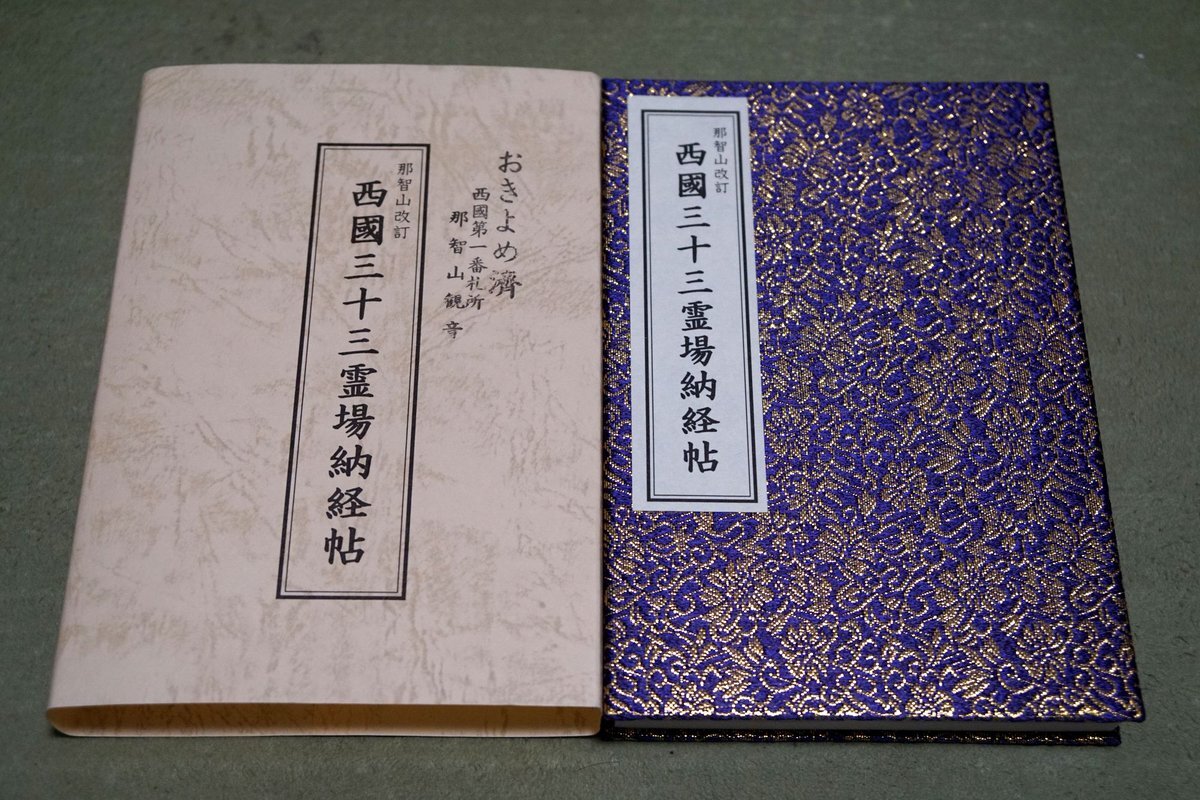 おきよめ濟
西國第一番札所
那智山観音
那智山改訂
西國三十三霊場納経帖
那智山改訂
西國三十三霊場納経帖